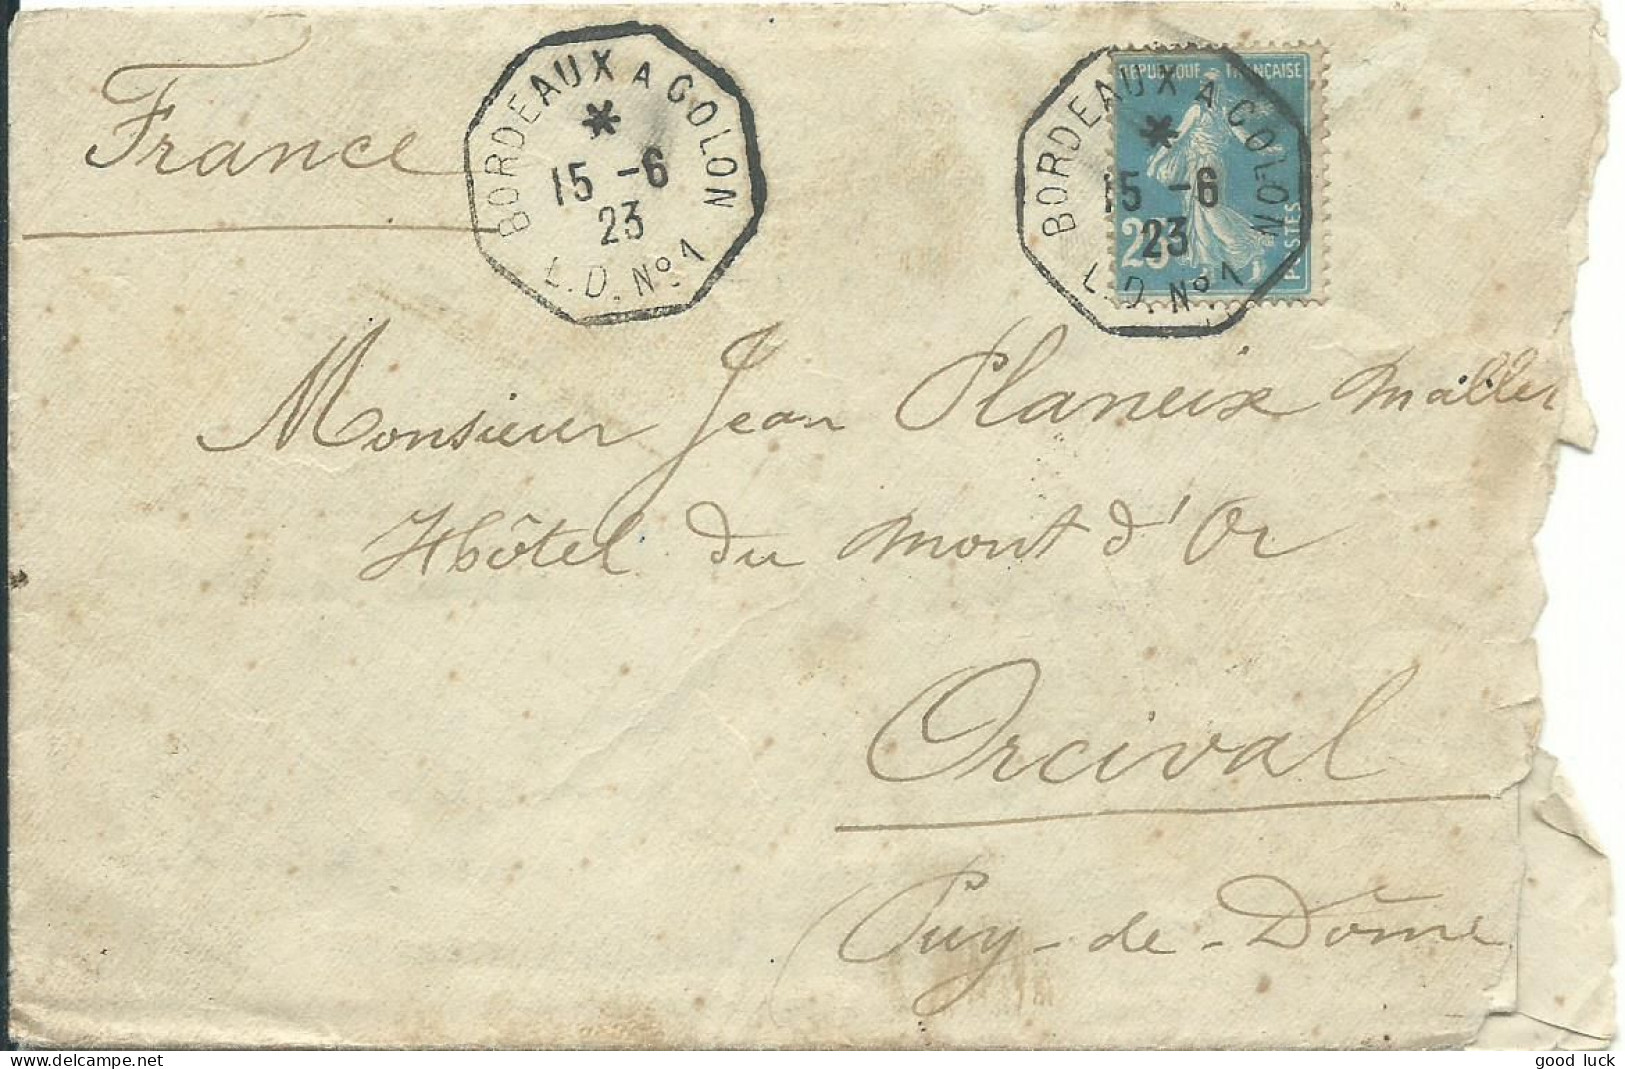 France
BORDEAUX A COLON
15 -6
23
L.D. No 1
REPUBLIQUE FRANÇAISE
25
POSTES
BORDEAUX A COLON
15 -6
23
L.D. No 1
Monsieur Jean Planeix
Hôtel du Mont d'Or
Orcival
Puy-de-Dôme
good luck